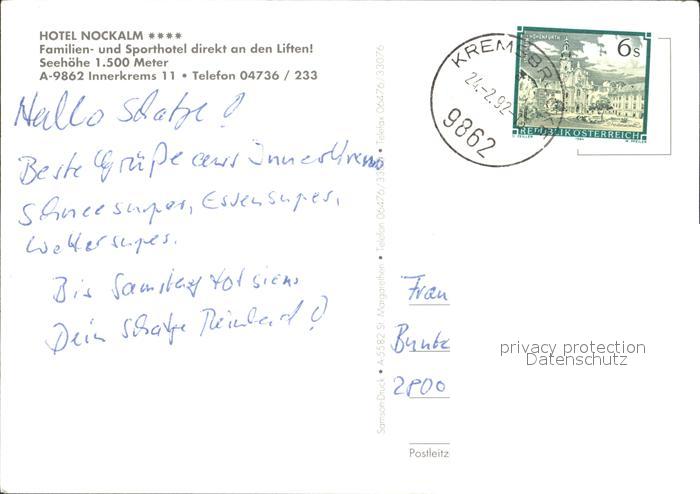 HOTEL NOCKALM ★★★★
Familien- und Sporthotel direkt an den Liften!
Seehöhe 1.500 Meter
A-9862 Innerkrems 11 • Telefon 04736 / 233
Hallo Schatze!
Beste Grüße aus Innerkrems
Schneesuper, Essensuper,
Wettersuper.
Bis Samstag
Dein Schatze Reinhard!
SamsonDruck • A-5582 St. Margarethen • Telefon 06476/ • Telefax 06476/33076
KREMSBR
24.-2.92
9862
6 S
REPUBLIK ÖSTERREICH
Frau
2800
Postleitz
privacy protection
Datenschutz